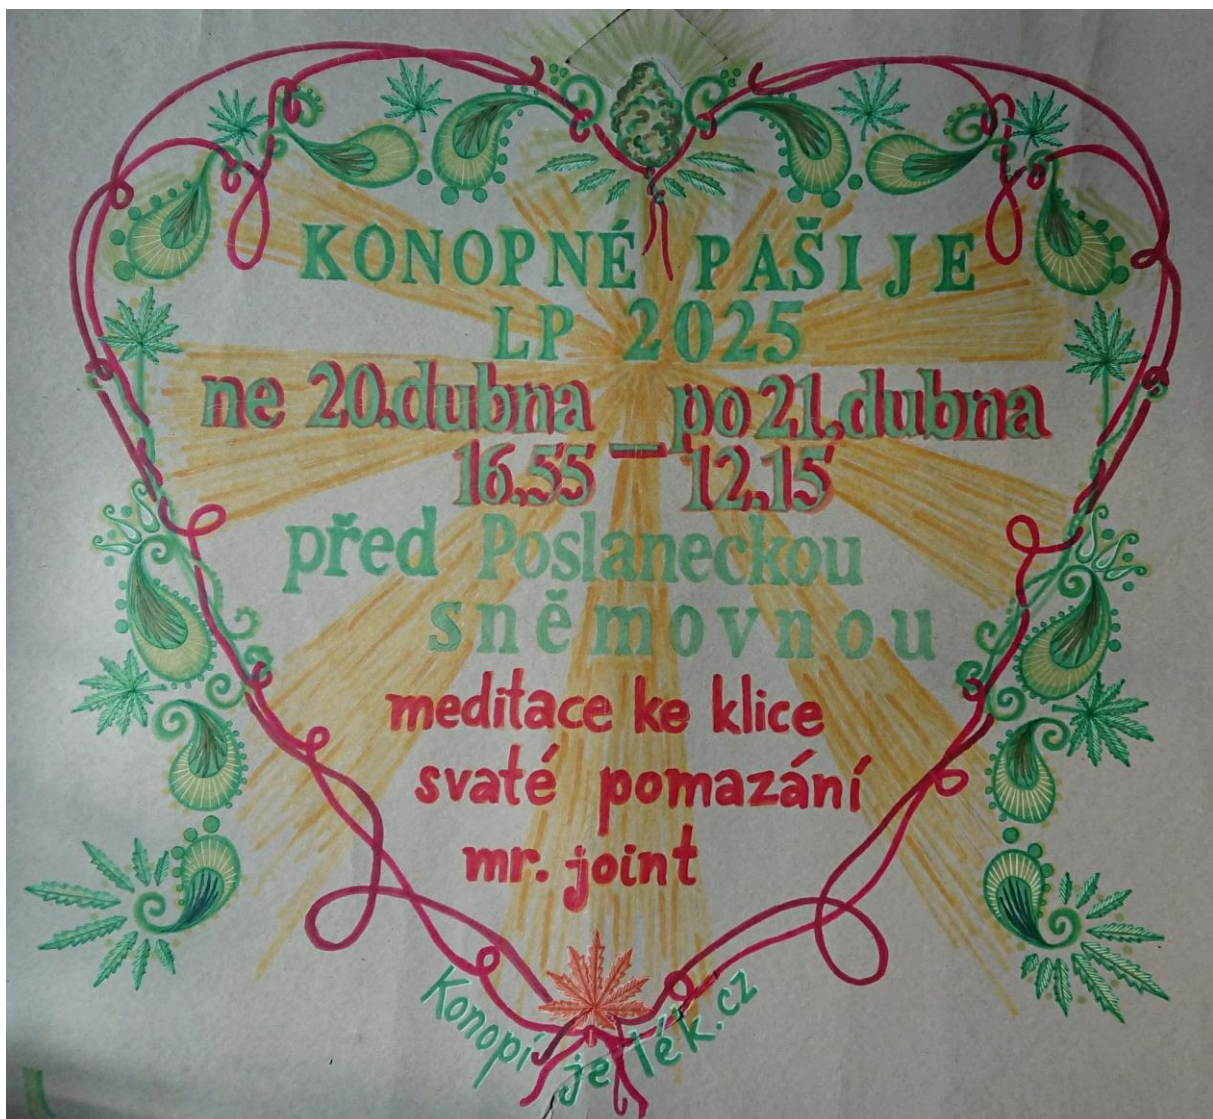 KONOPNÉ PAŠIJE
LP 2025
ne 20.dubna – po 21.dubna
16.55 – 12.15
před Poslaneckou
sněmovnou
meditace ke klice
svaté pomazání
mr. joint
Konopí je lék.cz